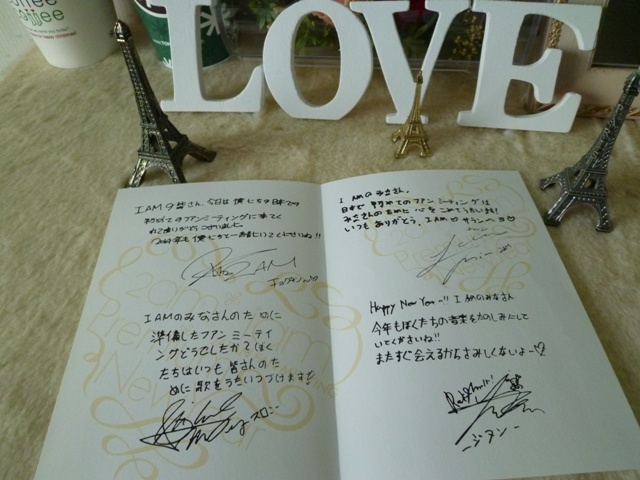 coffee
LOVE
I AMの皆さん、今日は僕たちの日本での
初めてのファンミーティングに来てく
れてありがとうございました
2014年も僕たちと一緒にいてくださいね!!
I AM
I AMのみなさんのために
準備したファンミーティ
ングどうでしたか?ぼく
たちはいつも皆さんのた
めに歌をうたいつづけます!
スロン-
I AMのみなさん、
日本で初めてのファンミーティングは
みなさんのために心をこめてうたいます!
いつもありがとう、I AMのサランヘヨ♡
Happy New Year-!! I AMのみなさん
今年もぼくたちの音楽をたのしみにして
いてくださいね!!
またすぐ会えるからさみしくないよー♡
-ジアン-